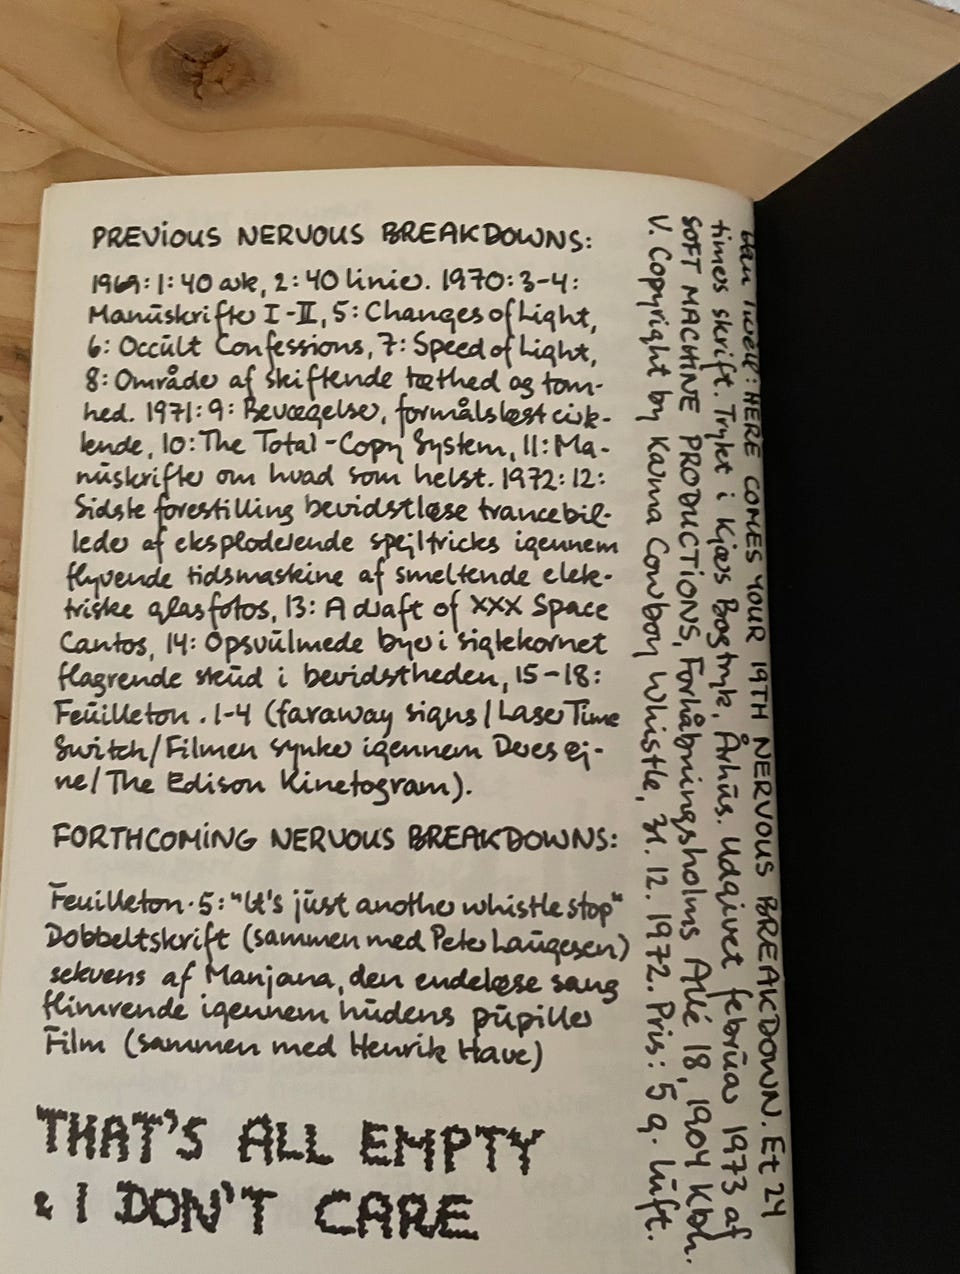 PREVIOUS NERVOUS BREAKDOWNS:
1969: 1: 40 ark, 2: 40 linier. 1970: 3-4:
Manūskrifter I-II, 5: Changes of Light,
6: Occūlt Confessions, 7: Speed of Light,
8: Områder af skiftende tæthed og tom-
hed. 1971: 9: Bevægelser, formålsløst cirk-
lende, 10: The Total-Copy System, 11: Ma-
nūskrifter om hvad som helst. 1972: 12:
Sidste forestilling bevidstløse trancebil-
leder af eksploderende spejltricks igennem
flyvende tidsmaskine af smeltende elek-
triske glasfotos, 13: A draft of XXX Space
Cantos, 14: Opsvūlmede byer i sigtekornet
flagrende skūd i bevidstheden, 15-18:
Feūilleton. 1-4 (faraway signs / Laser Time
Switch / Filmen synker igennem Deres øj-
ne / The Edison Kinetogram).
FORTHCOMING NERVOUS BREAKDOWNS:
Feuilleton. 5: "It's jūst another whistle stop"
Dobbeltskrift (sammen med Peter Laūgesen)
sekvens af Manjana, den endeløse sang
flimrende igennem hūdens pūpiller
Film (sammen med Henrik Have)
THAT'S ALL EMPTY
& I DON'T CARE
Dan Turèll: HERE COMES YOUR 19TH NERVOUS BREAKDOWN. Et 24
times skrift. Trykt i Kjærs Bogtryk, Århūs. Udgivet febrūar 1973 af
SOFT MACHINE PRODUCTIONS, Forhåbningsholms Allé 18, 1904 Kbh.
V. Copyright by Karma Cowboy Whistle, 31. 12. 1972. Pris: 5 g. lūft.